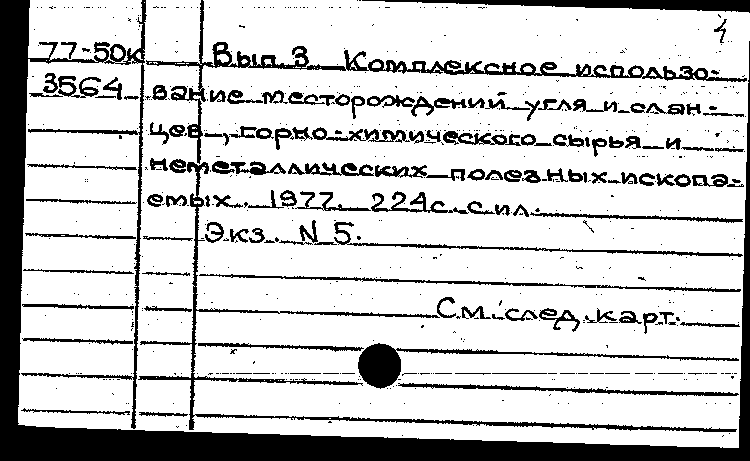 4
77-50к Вып. 3 Комплексное использо-
3564 вание месторождений угля и слан-
цев, горно-химического сырья и
неметаллических полезных ископа-
емых. 1977. 224с. с ил.
Экз. N 5.
См. след. карт.